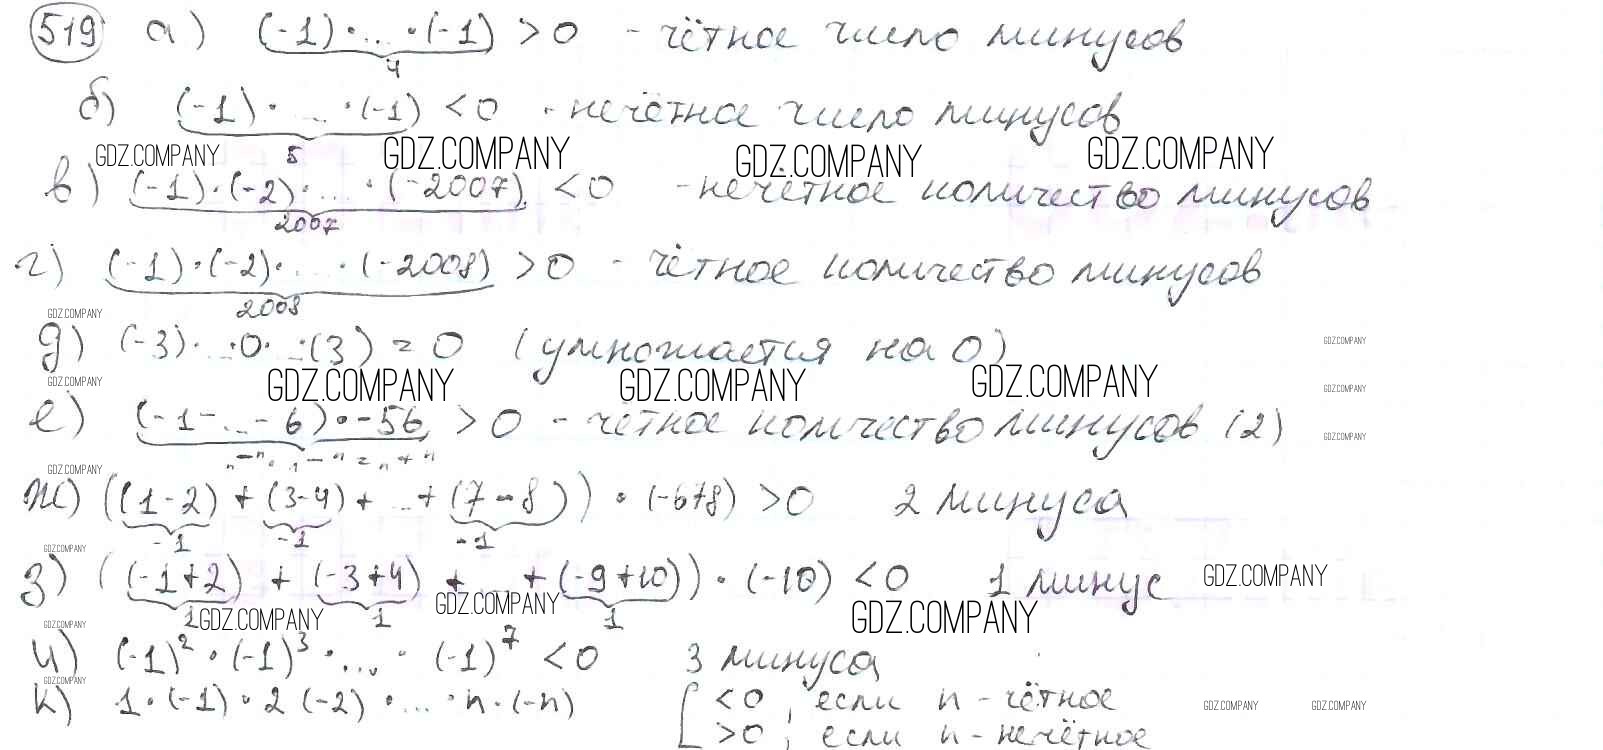 519 а) (-1)·...·(-1) > 0 - чётное число минусов
4
б) (-1)·...·(-1) < 0 - нечётное число минусов
5
GDZ.COMPANY GDZ.COMPANY GDZ.COMPANY GDZ.COMPANY
в) (-1)·(-2)·...·(-2007) < 0 - нечётное количество минусов
2007
г) (-1)·(-2)·...·(-2008) > 0 - чётное количество минусов
2008
GDZ.COMPANY
д) (-3)·...·0·...·(3) = 0 (умножается на 0)
GDZ.COMPANY
GDZ.COMPANY GDZ.COMPANY GDZ.COMPANY GDZ.COMPANY GDZ.COMPANY
е) (-1-...-6)·-56 > 0 - чётное количество минусов (2)
GDZ.COMPANY
"-"·"-"="+"
GDZ.COMPANY
ж) ((1-2)+(3-4)+...+(7-8))·(-678) > 0 2 минуса
-1 -1 -1
GDZ.COMPANY
з) ((-1+2)+(-3+4)+...+(-9+10))·(-10) < 0 1 минус GDZ.COMPANY
1 1 1
GDZ.COMPANY GDZ.COMPANY GDZ.COMPANY GDZ.COMPANY
и) (-1)²·(-1)³·...·(-1)⁷ < 0 3 минуса
GDZ.COMPANY
к) 1·(-1)·2(-2)·...·n·(-n) [ < 0, если n - чётное GDZ.COMPANY GDZ.COMPANY
> 0, если n - нечётное